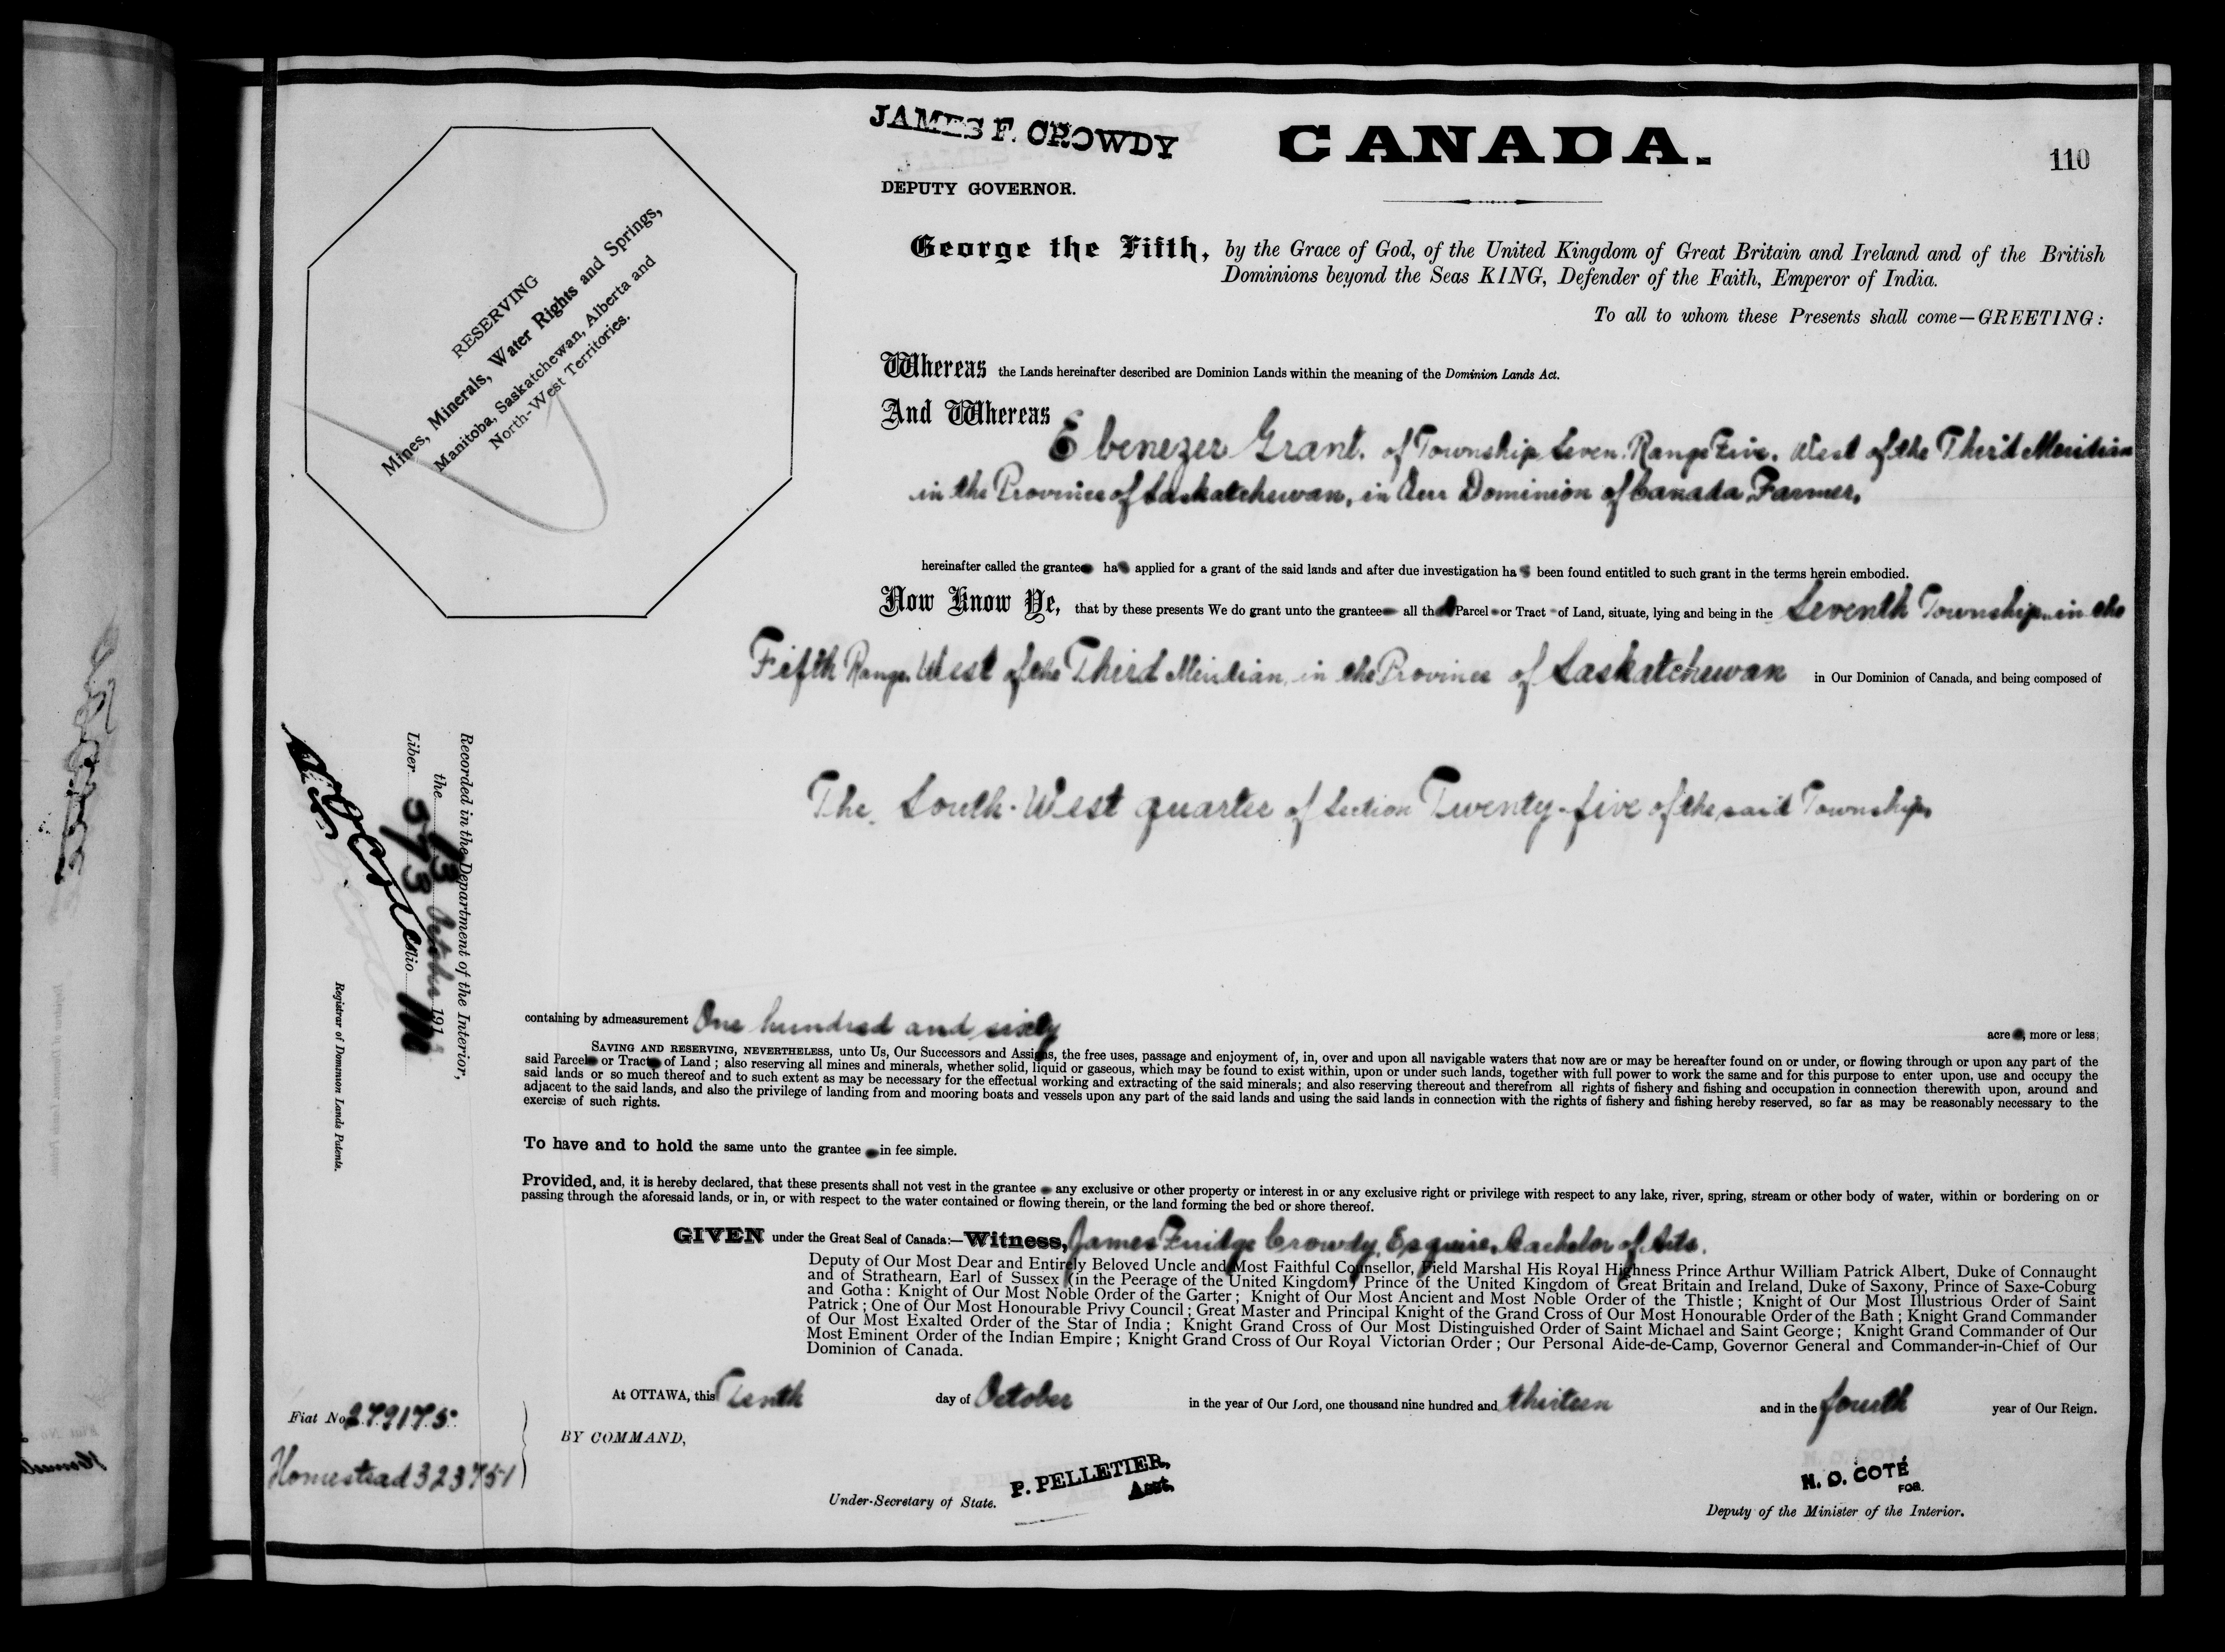 JAMES F. CROWDY
CANADA.
110
DEPUTY GOVERNOR.
RESERVING
Mines, Minerals, Water Rights and Springs,
Manitoba, Saskatchewan, Alberta and
North-West Territories.
George the Fifth, by the Grace of God, of the United Kingdom of Great Britain and Ireland and of the British
Dominions beyond the Seas KING, Defender of the Faith, Emperor of India.
To all to whom these Presents shall come—GREETING:
Whereas the Lands hereinafter described are Dominion Lands within the meaning of the Dominion Lands Act.
And Whereas
Ebenezer Grant. of Township Seven. Range Five. West of the Third Meridian
in the Province of Saskatchewan, in Our Dominion of Canada, Farmer,
hereinafter called the grantee has applied for a grant of the said lands and after due investigation has been found entitled to such grant in the terms herein embodied.
Now Know Ye, that by these presents We do grant unto the grantee all that Parcel or Tract of Land, situate, lying and being in the Seventh Township in the
Fifth Range, West of the Third Meridian, in the Province of Saskatchewan in Our Dominion of Canada, and being composed of
The South-West quarter of Section Twenty-five of the said Township,
Recorded in the Department of the Interior,
the 13 October 191
Liber 573 Folio 110
Registrar of Dominion Lands Patents.
containing by admeasurement One hundred and sixty acre, more or less;
SAVING AND RESERVING, NEVERTHELESS, unto Us, Our Successors and Assigns, the free uses, passage and enjoyment of, in, over and upon all navigable waters that now are or may be hereafter found on or under, or flowing through or upon any part of the
said Parcel or Tract of Land; also reserving all mines and minerals, whether solid, liquid or gaseous, which may be found to exist within, upon or under such lands, together with full power to work the same and for this purpose to enter upon, use and occupy the
said lands or so much thereof and to such extent as may be necessary for the effectual working and extracting of the said minerals; and also reserving thereout and therefrom all rights of fishery and fishing and occupation in connection therewith upon, around and
adjacent to the said lands, and also the privilege of landing from and mooring boats and vessels upon any part of the said lands and using the said lands in connection with the rights of fishery and fishing hereby reserved, so far as may be reasonably necessary to the
exercise of such rights.
To have and to hold the same unto the grantee in fee simple.
Provided, and, it is hereby declared, that these presents shall not vest in the grantee any exclusive or other property or interest in or any exclusive right or privilege with respect to any lake, river, spring, stream or other body of water, within or bordering on or
passing through the aforesaid lands, or in, or with respect to the water contained or flowing therein, or the land forming the bed or shore thereof.
GIVEN under the Great Seal of Canada:—Witness, James Fuidge Crowdy, Esquire, Bachelor of Arts,
Deputy of Our Most Dear and Entirely Beloved Uncle and Most Faithful Counsellor, Field Marshal His Royal Highness Prince Arthur William Patrick Albert, Duke of Connaught
and of Strathearn, Earl of Sussex (in the Peerage of the United Kingdom) Prince of the United Kingdom of Great Britain and Ireland, Duke of Saxony, Prince of Saxe-Coburg
and Gotha: Knight of Our Most Noble Order of the Garter; Knight of Our Most Ancient and Most Noble Order of the Thistle; Knight of Our Most Illustrious Order of Saint
Patrick; One of Our Most Honourable Privy Council; Great Master and Principal Knight of the Grand Cross of Our Most Honourable Order of the Bath; Knight Grand Commander
of Our Most Exalted Order of the Star of India; Knight Grand Cross of Our Most Distinguished Order of Saint Michael and Saint George; Knight Grand Commander of Our
Most Eminent Order of the Indian Empire; Knight Grand Cross of Our Royal Victorian Order; Our Personal Aide-de-Camp, Governor General and Commander-in-Chief of Our
Dominion of Canada.
At OTTAWA, this Tenth day of October in the year of Our Lord, one thousand nine hundred and thirteen and in the fourth year of Our Reign.
Fiat No 279175.
BY COMMAND,
Homestead 323751
P. PELLETIER,
Asst.
Under-Secretary of State.
N. O. COTÉ
FOR.
Deputy of the Minister of the Interior.